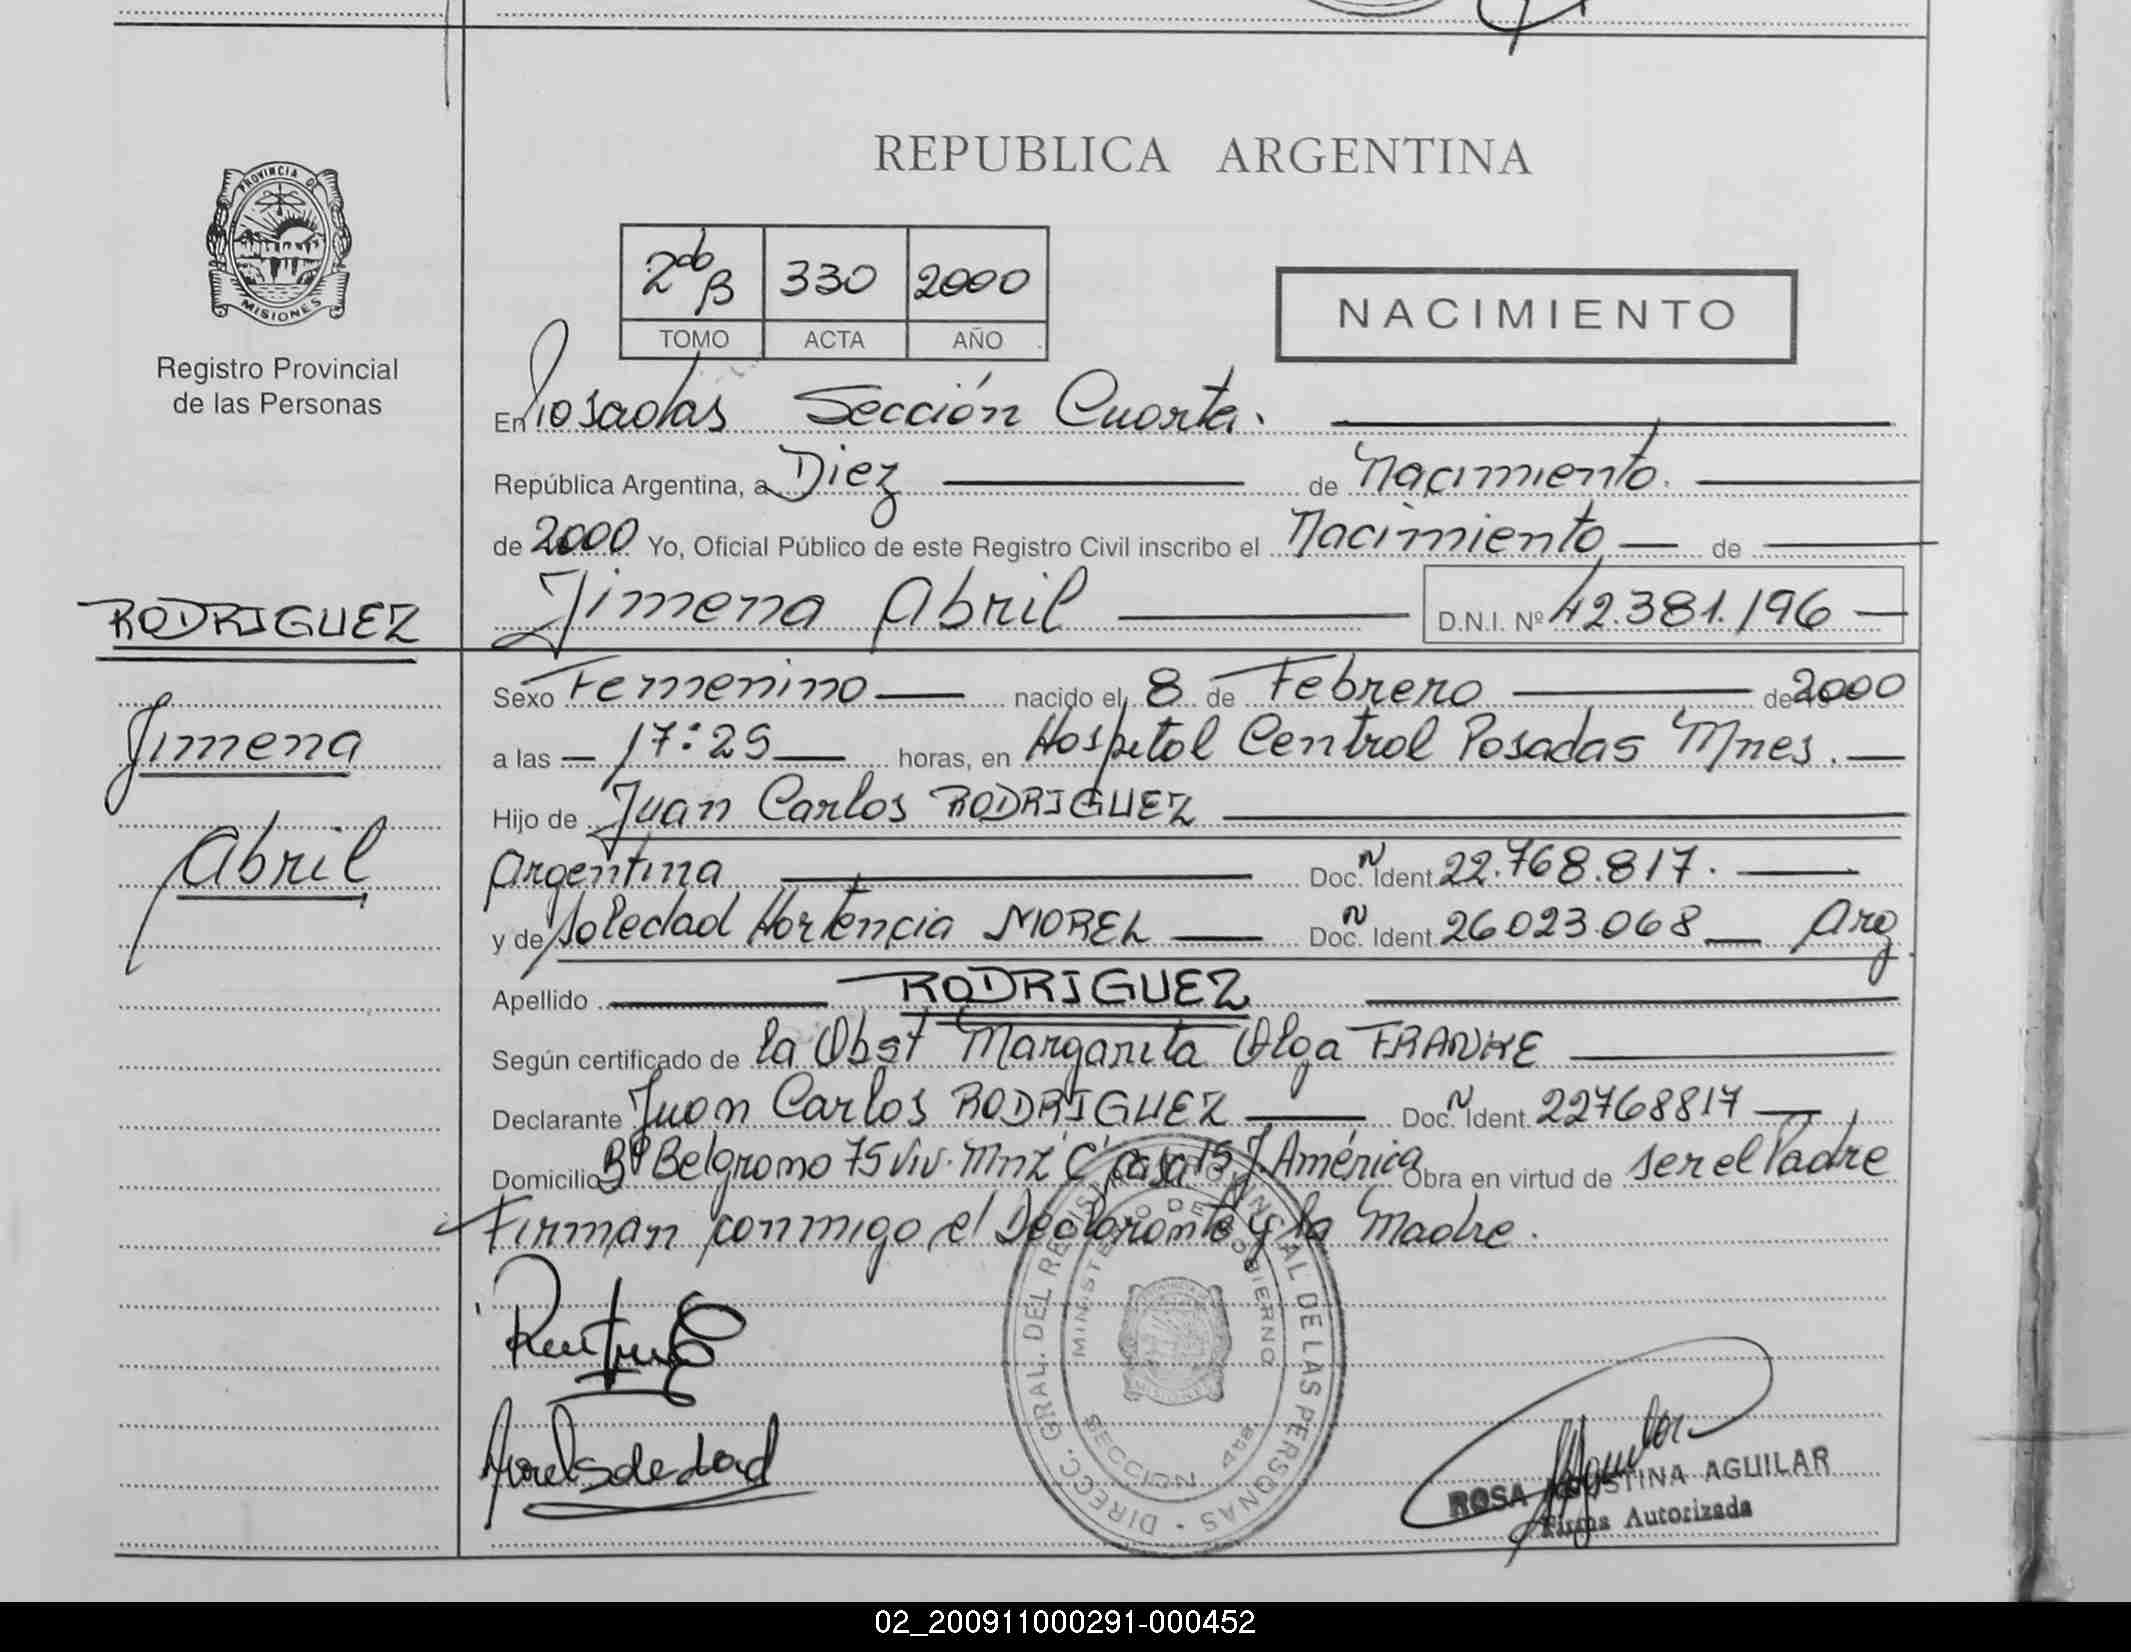 REPUBLICA ARGENTINA
PROVINCIA DE
MISIONES
Registro Provincial
de las Personas
2do B 330 2000
TOMO ACTA AÑO
NACIMIENTO
En Posadas Sección Cuarta.
República Argentina, a Diez de Nacimiento.
de 2000 Yo, Oficial Público de este Registro Civil inscribo el Nacimiento de
Jimena Abril D.N.I. Nº 42.381.196
RODRIGUEZ
Jimena
Abril
Sexo Femenino nacido el 8 de Febrero de 2000
a las 17:25 horas, en Hospital Central Posadas Mnes.
Hijo de Juan Carlos RODRIGUEZ
Argentina Doc. N Ident 22.768.817.
y de Soledad Hortencia MOREL Doc. N Ident 26023.068 Arg.
Apellido RODRIGUEZ
Según certificado de la Obst Margarita Olga FRANKE
Declarante Juan Carlos RODRIGUEZ Doc. N Ident 22768817
Domicilio Bº Belgrano 75 Viv. Mnz "C" casa 15 J. América Obra en virtud de ser el Padre
Firman conmigo el Declarante y la Madre.
Morel Soledad
DIRECC. GRAL. DEL REGISTRO PROVINCIAL DE LAS PERSONAS
MINISTERIO DE GOBIERNO
MISIONES
SECCION 4ta
Aguilar
ROSA AGUSTINA AGUILAR
Firma Autorizada
02_200911000291-000452